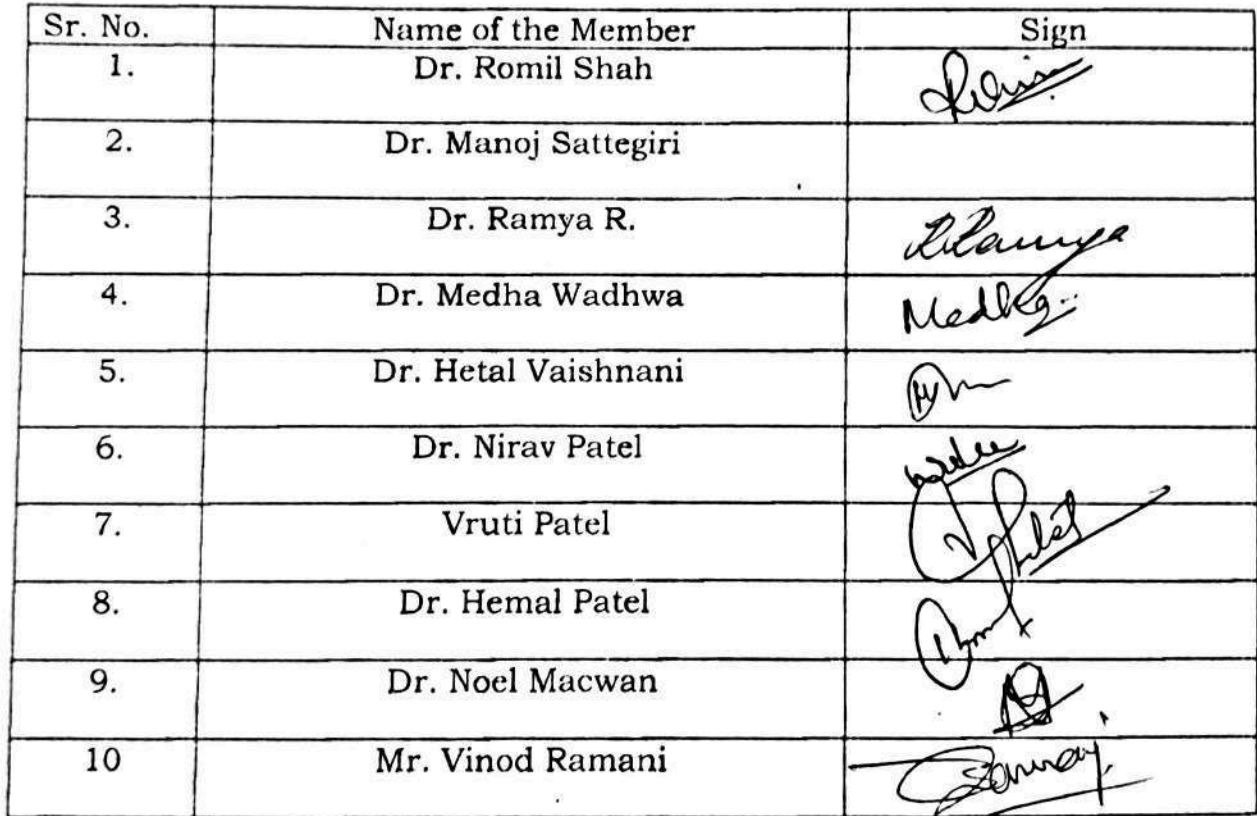 Sr. No. Name of the Member Sign
1. Dr. Romil Shah
2. Dr. Manoj Sattegiri
3. Dr. Ramya R. RRamya
4. Dr. Medha Wadhwa Medha
5. Dr. Hetal Vaishnani
6. Dr. Nirav Patel
7. Vruti Patel
8. Dr. Hemal Patel
9. Dr. Noel Macwan
10 Mr. Vinod Ramani